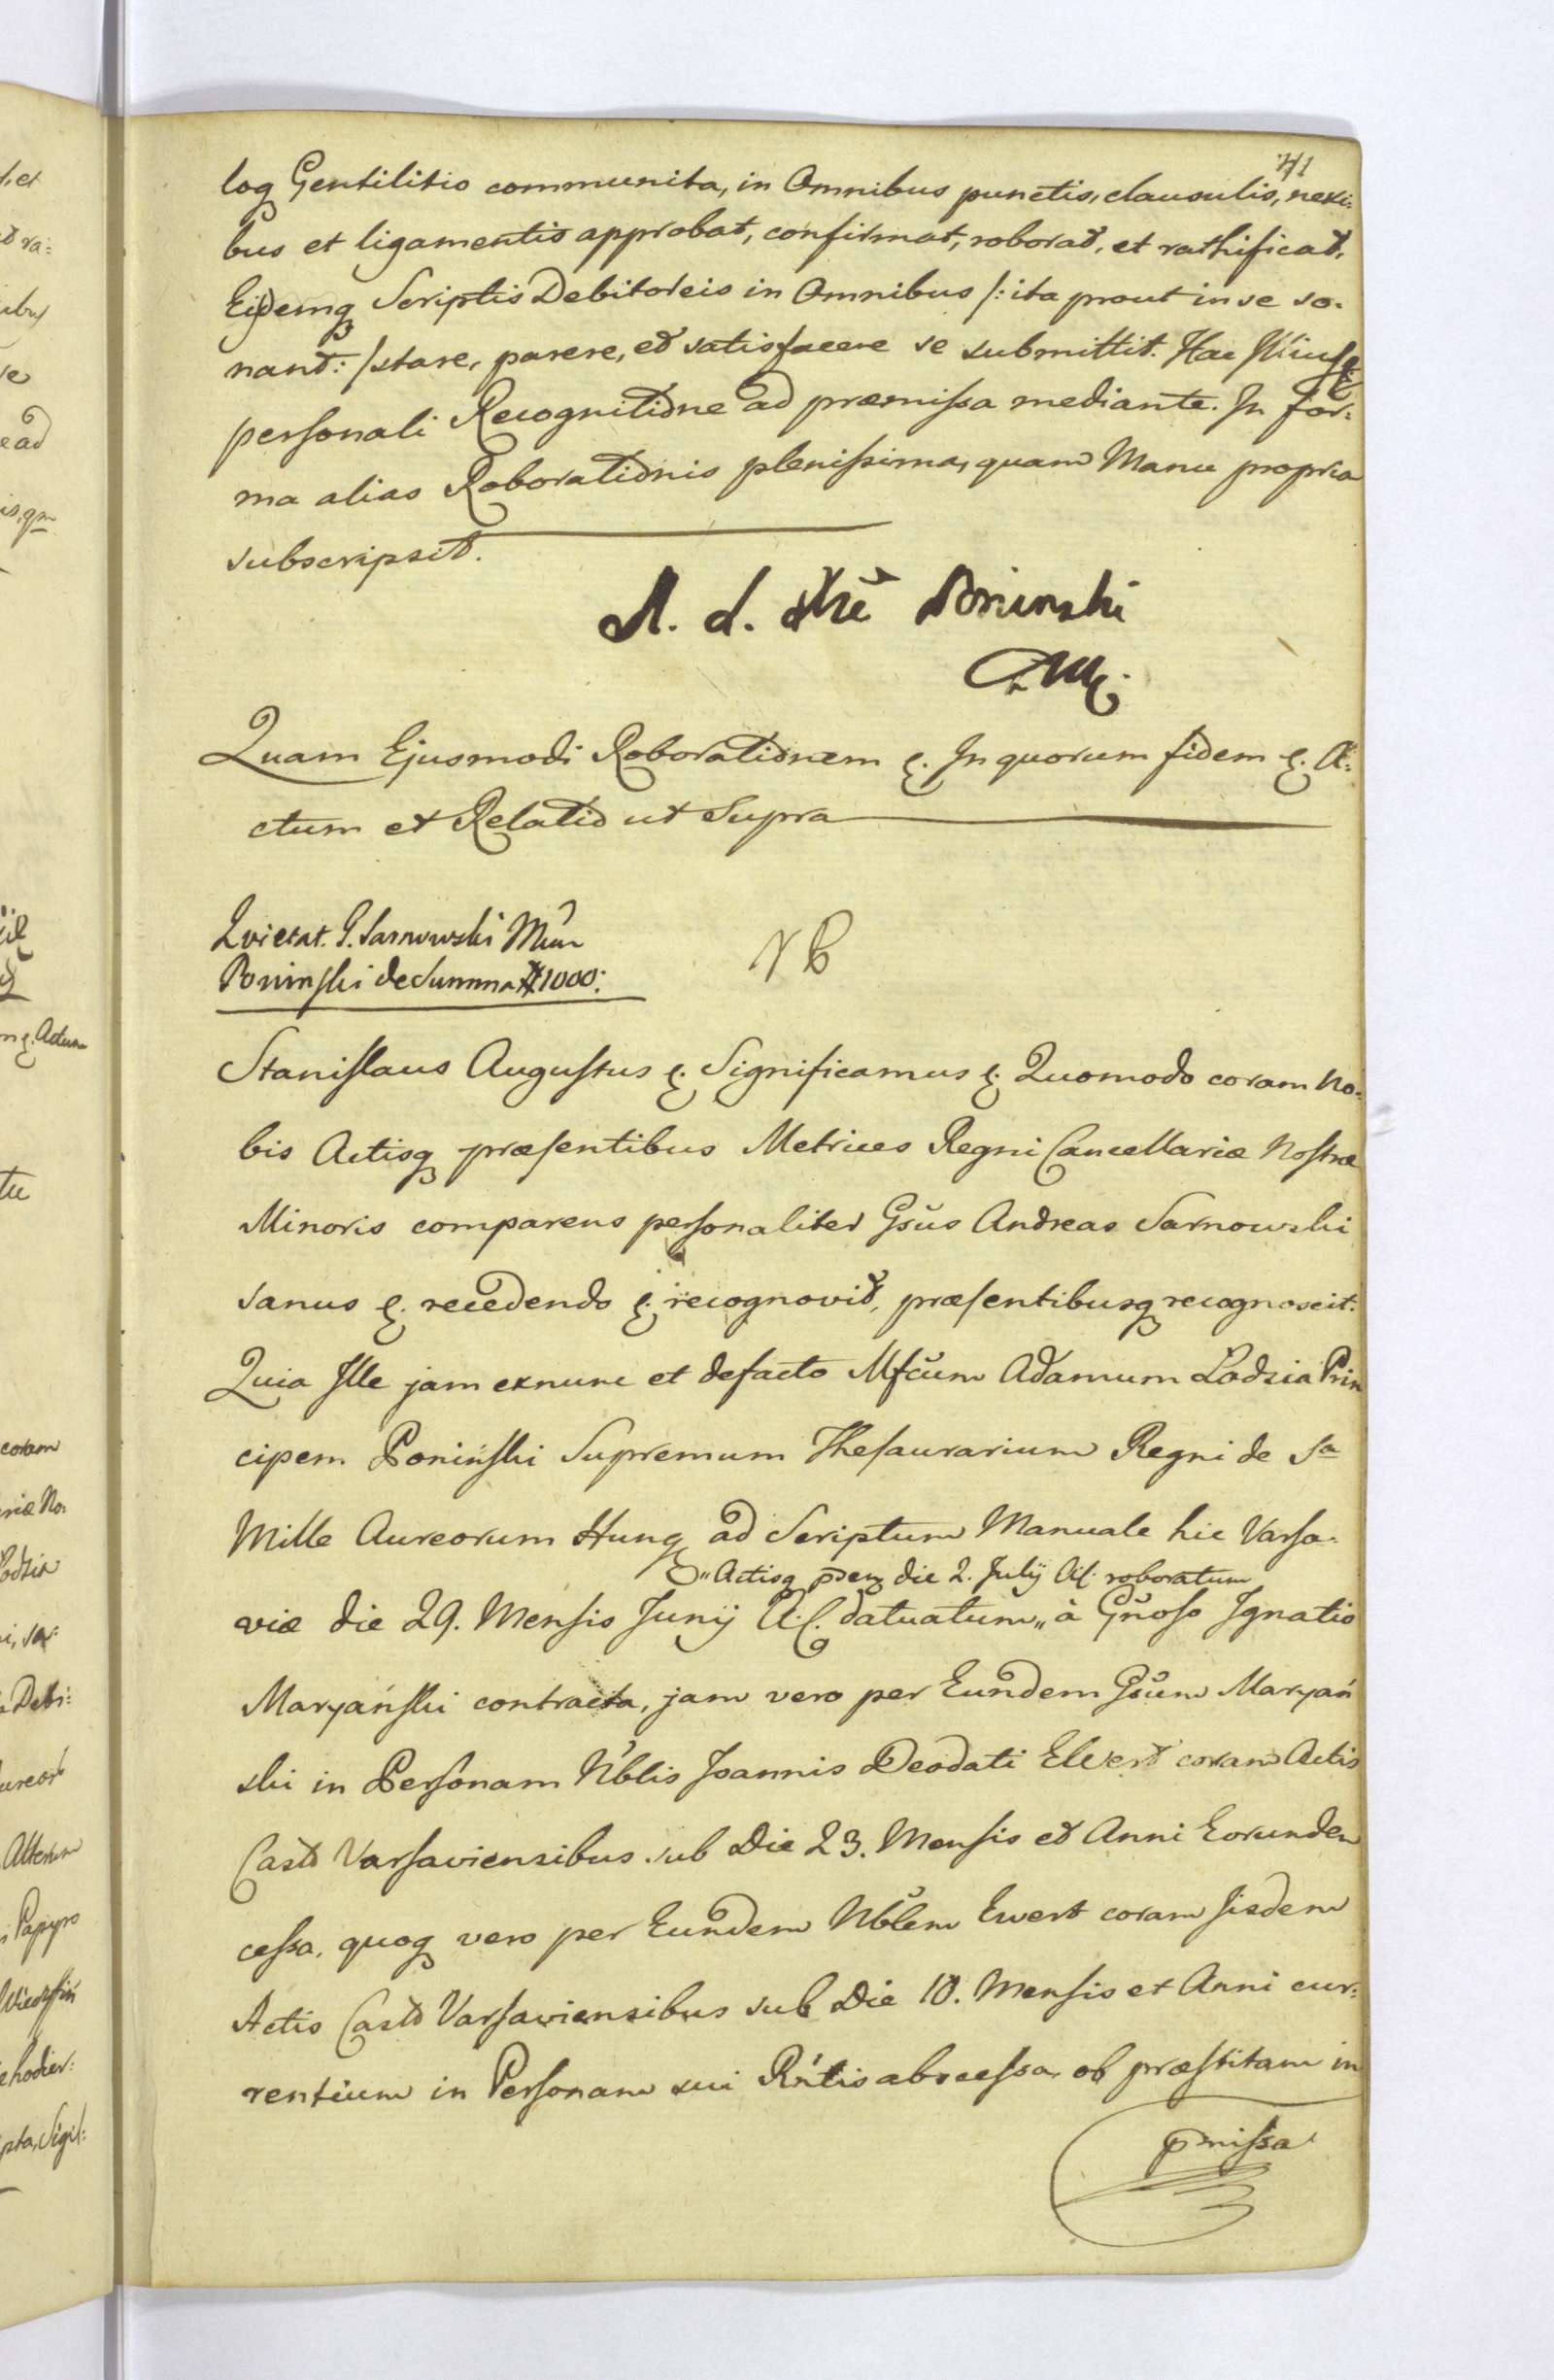 71
log Gentilitio communita, in Omnibus punctis, clausulis, nexi:
bus et ligamentis approbat, confirmat, roborat, et rathificat,
Eisdemq Scriptis Debitoreis in Omnibus /: ita prout in se so:
nant: / stare, parere, et satisfacere se submittit. Hac
personali Recognitione ad præmissa mediante. In for:
ma alias Roborationis plenissima, quam Manu propria
subscripsit.
A. L. Xże Poninski
Quam Ejusmodi Roborationem &. In quorum fidem &. A:
ctum et Relatio ut Supra
Quietat. G. Sarnowski
Poninski de Summa # 1000:
NB
Stanislaus Augustus &. Significamus &. Quomodo coram No:
bis Actisq præsentibus Metrices Regni Cancellariæ Nostræ
Minoris comparens personaliter Gsus Andreas Sarnowski
sanus &. recedendo &. recognovit, præsentibusq recognoscit.
Quia Ille jam exnunc et defacto Mfcum Adamum Lodzia Prin
cipem Poniński Supremum Thesaurarium Regni de Sa
Mille Aureorum Hung ad Scriptum Manuale hic Varsa:
„Actisq die 2. Julij roboratum
viæ die 29. Mensis Junij A. C. datuatum „ à Gnoso Ignatio
Maryański contracta, jam vero per Eundem Gsum Maryań
ski in Personam Nblis Joannis Deodati Elvert coram Actis
Castr Varsaviensibus sub Die 23. Mensis et Anni Eorundem
cessa, quoq vero per Eundem Nblem Ewert coram Iisdem
Actis Castr Varsaviensibus sub Die 10. Mensis et Anni cur:
rentium in Personam sui Rntis abscessa, ob præstitam in
pmissa